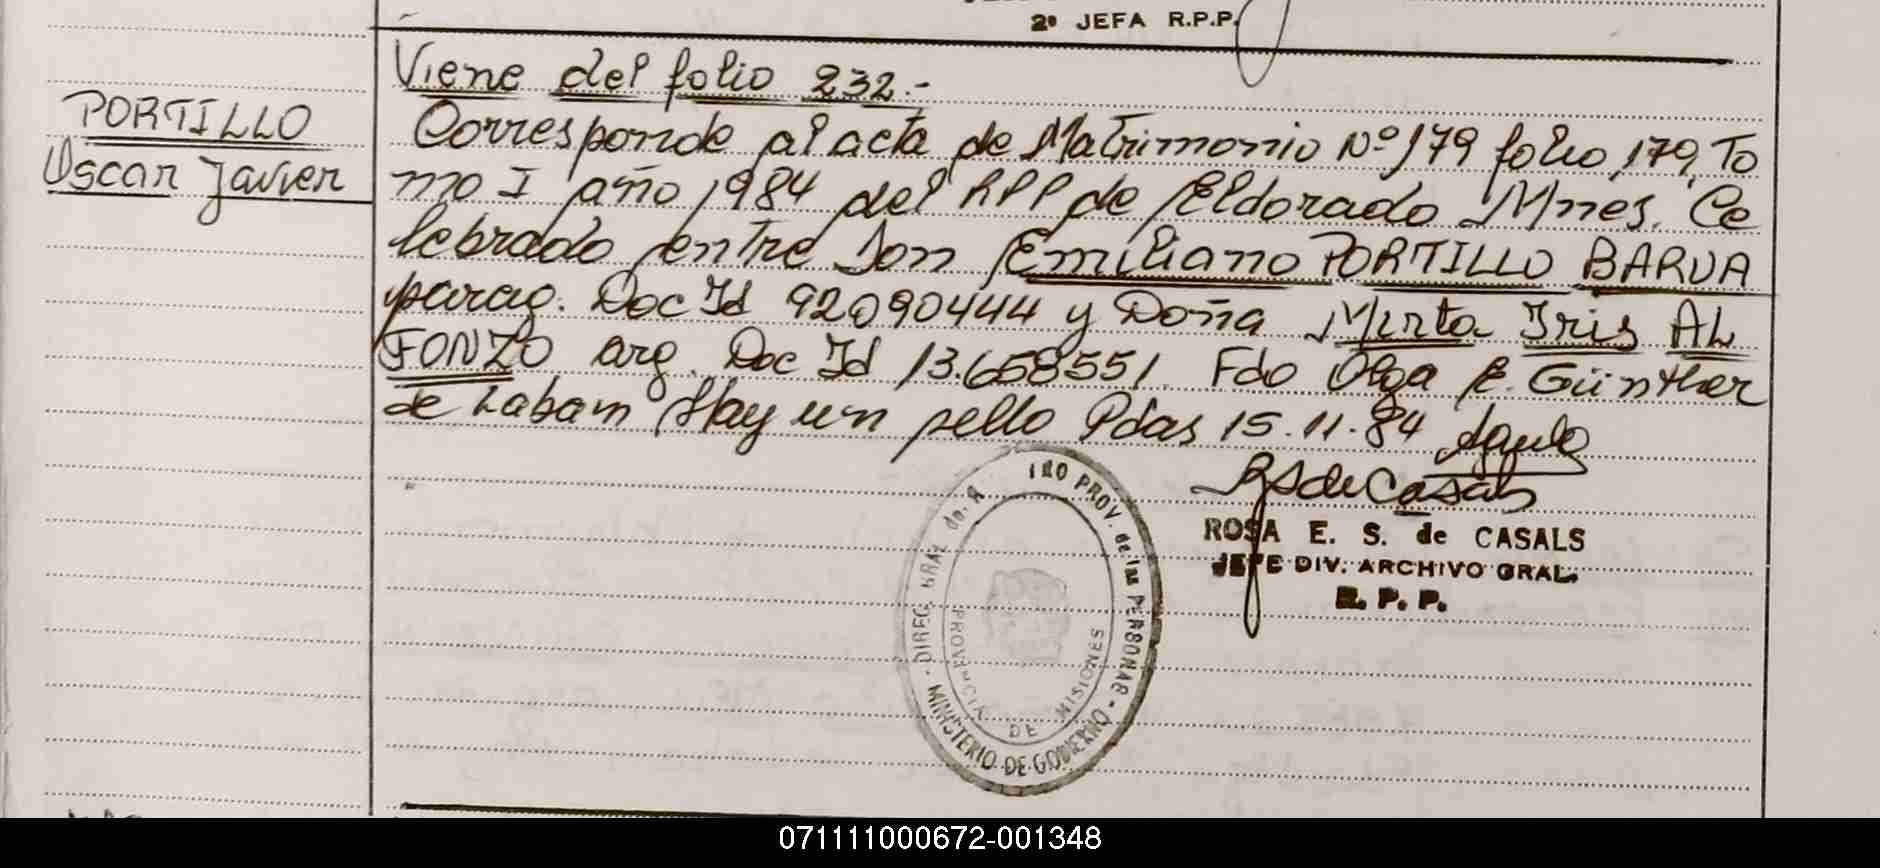 2º JEFA R.P.P.
PORTILLO
Oscar Javier
Viene del folio 232.-
Corresponde al acta de Matrimonio Nº 179 folio 179, To
mo I año 1984 del RPP de Eldorado Mnes. Ce
lebrado entre Don Emiliano PORTILLO BARUA
parag. Doc Id 92090444 y Doña Mirta Iris AL
FONZO arg. Doc Id 13.658551. Fdo Olga E. Günther
de Laban Hay un sello Pdas 15.11.84
RS de Casals
ROSA E. S. de CASALS
JEFE DIV. ARCHIVO GRAL.
R. P. P.
DIREC. GRAL. de. R TRO PROV. de las PERSONAS - MINISTERIO DE GOBIERNO -
PROVINCIA DE MISIONES
071111000672-001348